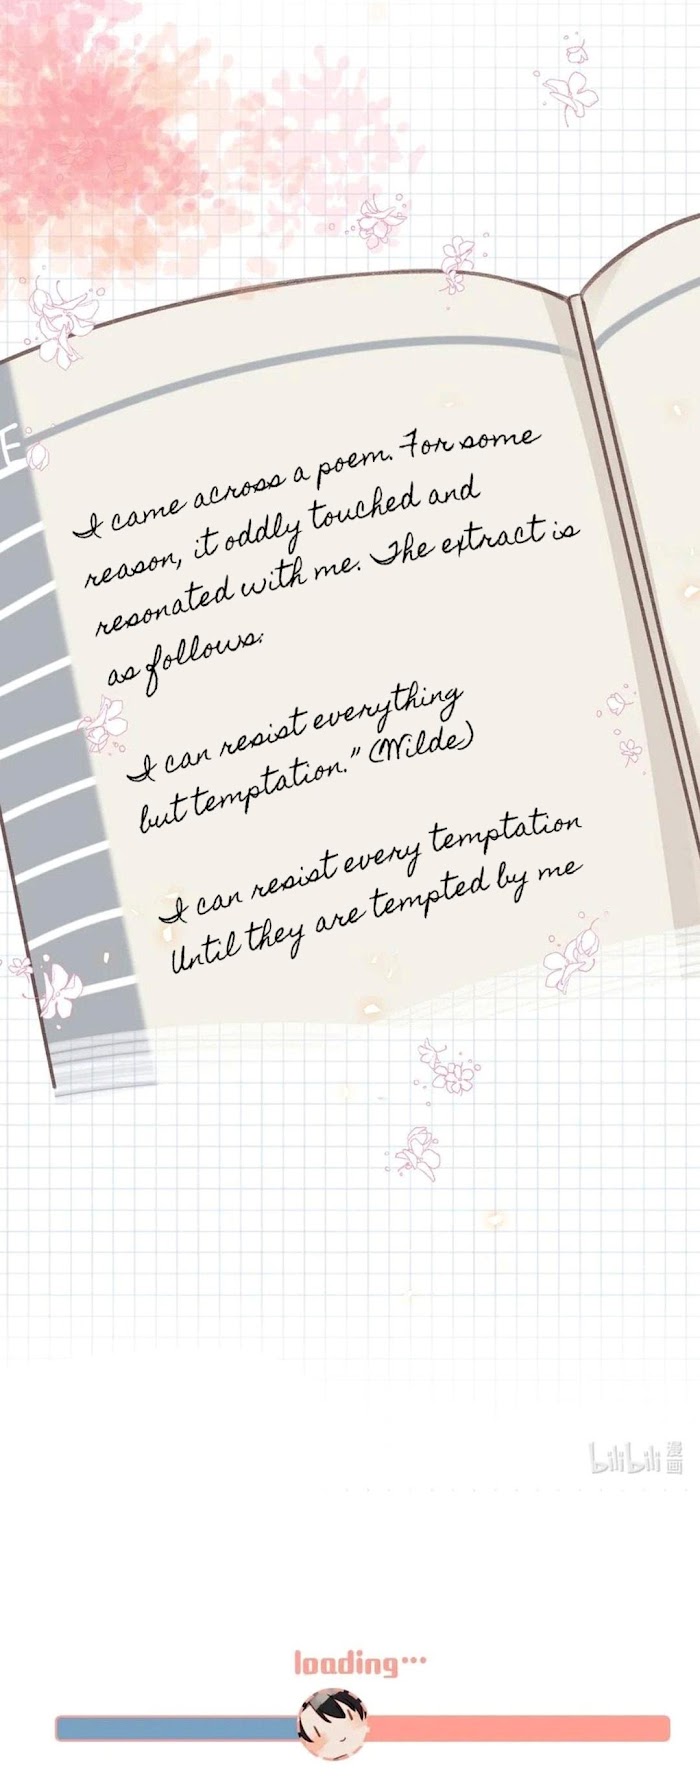 E
I came across a poem. For some
reason, it oddly touched and
resonated with me. The extract is
as follows:
I can resist everything
but temptation." (Wilde)
I can resist every temptation
Until they are tempted by me
bilibili 漫画
loading...